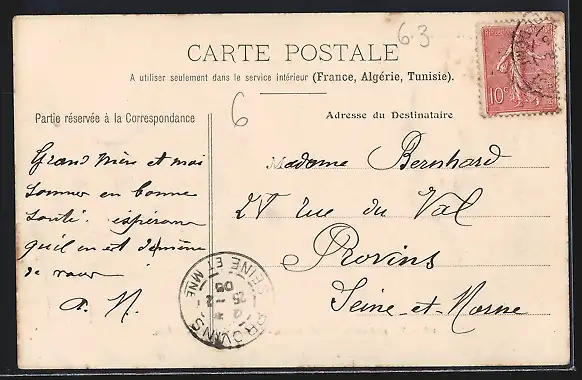 6.3
CARTE POSTALE
A utiliser seulement dans le service intérieur (France, Algérie, Tunisie).
6
Partie réservée à la Correspondance
Adresse du Destinataire
Grand Mère et moi
sommes en bonne
santé. espérons
qu'il en est de même
de vous
A. N.
Madame Bernhard
rue du Val
Provins
Seine-et-Marne
10c
PROVINS
SEINE ET MNE
25 - 2
05